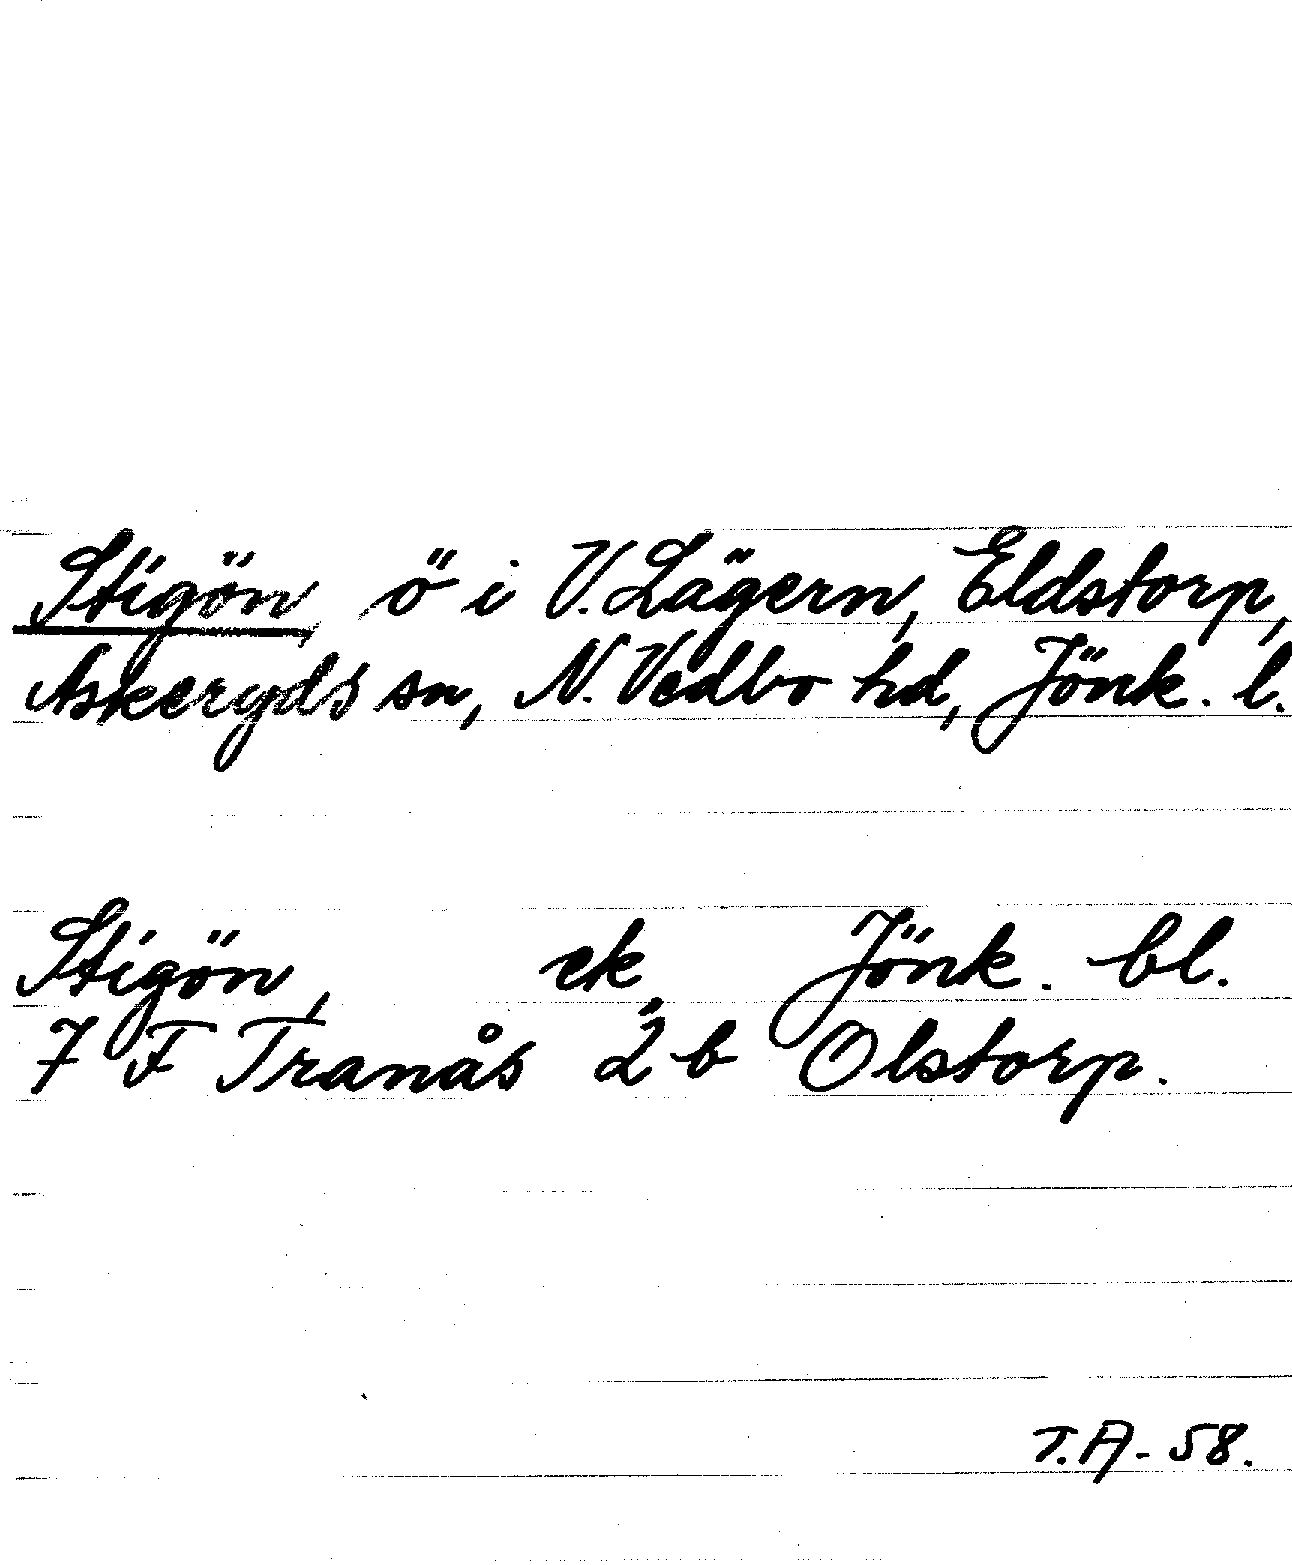 Stigön, ö i V. Lägern, Eldstorp,
Askeryds sn, N. Vedbo hd, Jönk. l.
Stigön, ek. Jönk. bl.
7 F Tranås 2 b Olstorp.
T.A-58.